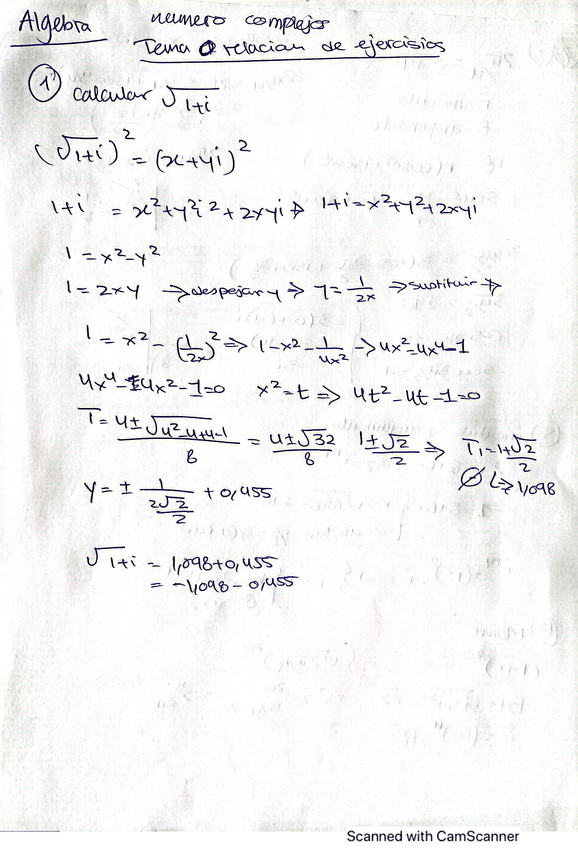 Algebra numero complejos
Tema 0 relacian de ejercisios
1) calcular √1+i
(√1+i)² = (x+yi)²
1+i = x²+y²i²+2xyi ⇒ 1+i=x²+y²+2xyi
1=x²-y²
1=2xy → despejar y ⇒ y=1/2x ⇒ sustituir →
1=x²-(1/2x)² ⇒ 1-x²-1/4x² → 4x²=4x⁴-1
4x⁴-4x²-1=0 x²=t ⇒ 4t²-4t-1=0
T=4±√4²-4·4·-1/8 = 4±√32/8 1±√2/2 ⇒ T₁=1+√2/2
∅ ↳ 1,098
y=± 1/2√2/2 + 0,455
√1+i = 1,098+0,455
= -1,098-0,455
Scanned with CamScanner